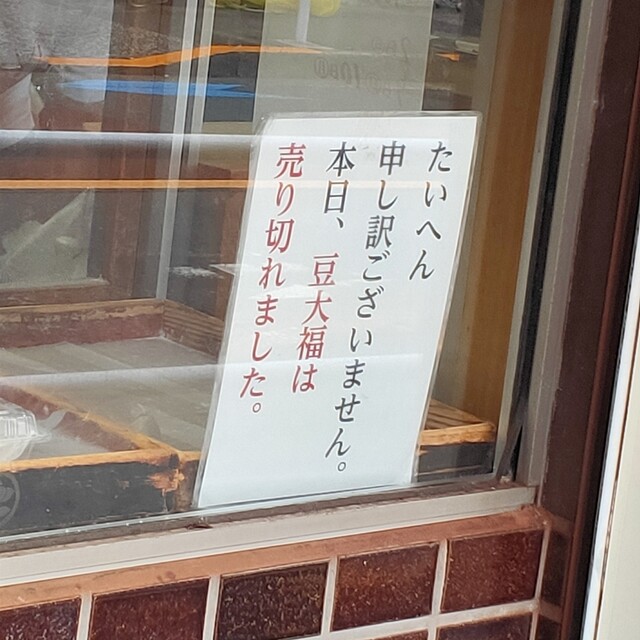 たいへん
申し訳ございません。
本日、豆大福は
売り切れました。